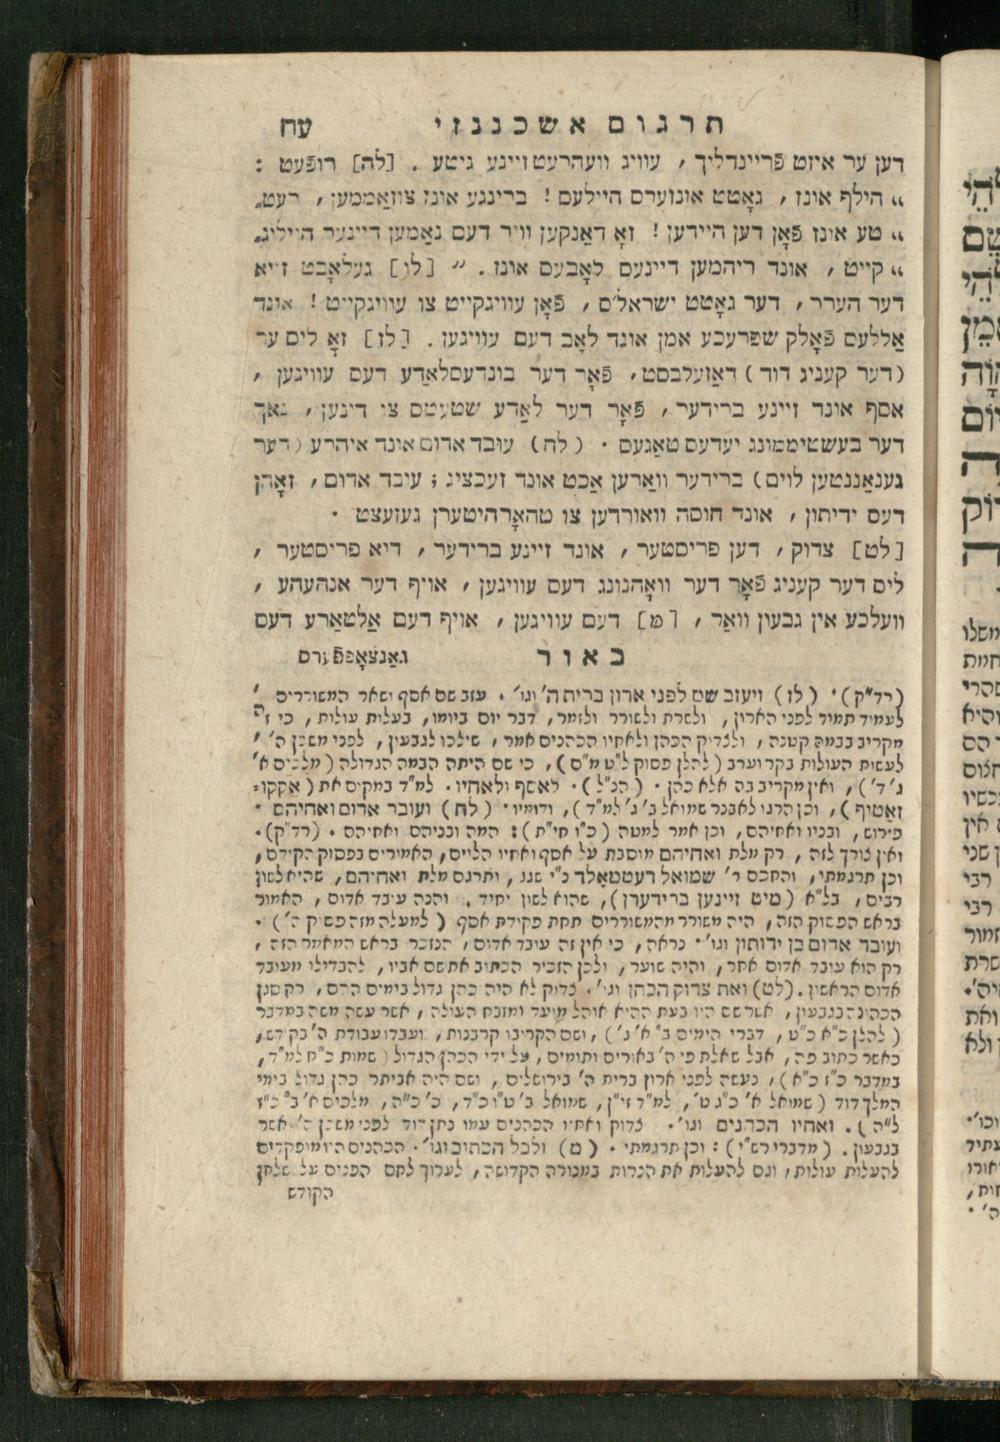 תרגום אשכנזי עח
דען ער איזט פֿריינדליך, עוויג וועהרעט זיינע גיטע. [לה] רופֿעט :
„ הילף אונז, גאָטט אונזערס היילעס! ברינגע אונז צוזאַממען, רעט„
„ טע אונז פֿאָן דען היידען! זאָ דאַנקען וויר דעם נאַמען דיינער הייליג„
„ קייט, אונד ריהמען דיינעס לאָבעס אונז. “ [לו] געלאָבט זייא
דער הערר, דער גאָטט ישראל'ס, פֿאָן עוויגקייט צו עוויגקייט! אונד
אַללעס פֿאָלק שפרעכע אמן אונד לאָב דעם עוויגען. [לז] זאָ ליס ער
(דער קעניג דוד) דאַזעלבסט, פֿאָר דער בונדעסלאַדע דעס עוויגען,
אסף אונד זיינע ברידער, פֿאָר דער לאַדע שטעטס צו דינען, נאך
דער בעשטיממונג יעדעס טאַגעס. (לח) עובד אדום אונד איהרע (דער
גענאַננטען לוים) ברידער וואַרען אַכט אונד זעכציג; עובד אדום, זאָהן
דעס ידיתון, אונד חוסה וואורדען צו טהאָרהיטערן געזעצט.
[לט] צדוק, דען פריסטער, אונד זיינע ברידער, דיא פריסטער,
ליס דער קעניג פֿאָר דער וואָהנונג דעס עוויגען, אויף דער אנהעהע,
וועלכע אין גבעון וואַר, [מ] דעם עוויגען, אויף דעם אַלטאַרע דעס
באור גאַנצאָפּפֿערס
(רד"ק). (לז) ויעזב שם לפני ארון ברית ה' וגו'. עזב שם אסף ושאר המשוררים
לעמיד תמיד לפני הארון, ולשרת ולשורר ולזמר, דבר יום ביומו, בעלות עולות, כי זה
מקריב בבמה קטנה, ולצדיק הכהן ולאחיו הכהנים אמר, שילכו לגבעון, לפני משכן ה',
לעשות העולות בקר וערב (להלן פסוק ל"ט מ'), כי שם היתה הבמה הגדולה (מלכים א'
ג' ד'), ואין מקריב בה אלא כהן. (הנ"ל). לאסף ולאחיו. למ"ד במקום את (אקקו=
זאַטיף), וכן הרגו לאבנר שמואל ב' ג' למ"ד), ודומיו. (לח) ועובד אדום ואחיהם.
פירוש, ובניו ואחיהם, וכן אמר למטה (כ"ו חי"ת): המה ובניהם ואחיהם. (רד"ק).
ואין צורך לזה, רק מלת ואחיהם מוסבת על אסף ואחיו הלוים, האמורים בפסוק הקודם,
וכן תרגמתי, והחכם ר' שמואל דעטטאָלד ב"י שגג, ותרגם מלת ואחיהם, שהיא לשון
רבים, בל"א (מיט זיינען ברידערן), שהוא לשון יחיד. והנה עובד אדום, האמור
בראש הפסוק הזה, היה משורר מהמשוררים תחת פקודת אסף (למעלה מזה פסוק ה').
ועובד אדום בן ידותון וגו'. נראה, כי אין זה עובד אדום, הנזכר בראש המאמר הזה,
רק הוא עובד אדום אחר, והיה שוער, ולכן הזכיר הכתוב את שם אביו, להבדילו מעובד
אדום הראשון. (לט) ואת צדוק הכהן וגו'. צדוק לא היה כהן גדול בימים ההם, רק סגן
הכהונה בגבעון, אשר שם היו בעת ההיא אוהל מועד ומזבח העולה, אשר עשה משה במדבר
(להלן כ"א כ"ט, דברי הימים ב' א' ג'), ושם הקריבו קרבנות, ועבדו עבודת ה' בקודש,
כאשר כתוב פה, אבל שאלת פי ה' באורים ותומים, על ידי הכהן הגדול (שמות כ"ח למ"ד,
במדבר כ"ז כ"א), נעשה לפני ארון ברית ה' בירושלים, ושם היה אביתר כהן גדול בימי
המלך דוד (שמואל א' כ"ג ט', למ"ד זי"ן, שמואל ב' ט"ו כ"ד, כ' כ"ה, מלכים א' ב' כ"ז
ל"ה). ואחיו הכהנים וגו'. צדוק ואחיו הכהנים עמו נתן דוד לפני משכן ה' אשר
בגבעון. (מדברי רש"י): וכן תרגמתי. (מ) ולכל הכתוב וגו'. הכהנים היו מופקדים
להעלות עולות, וגם להעלות את הנרות במנורה הקדושה, לערוך לחם הפנים על שלחן
הקודש